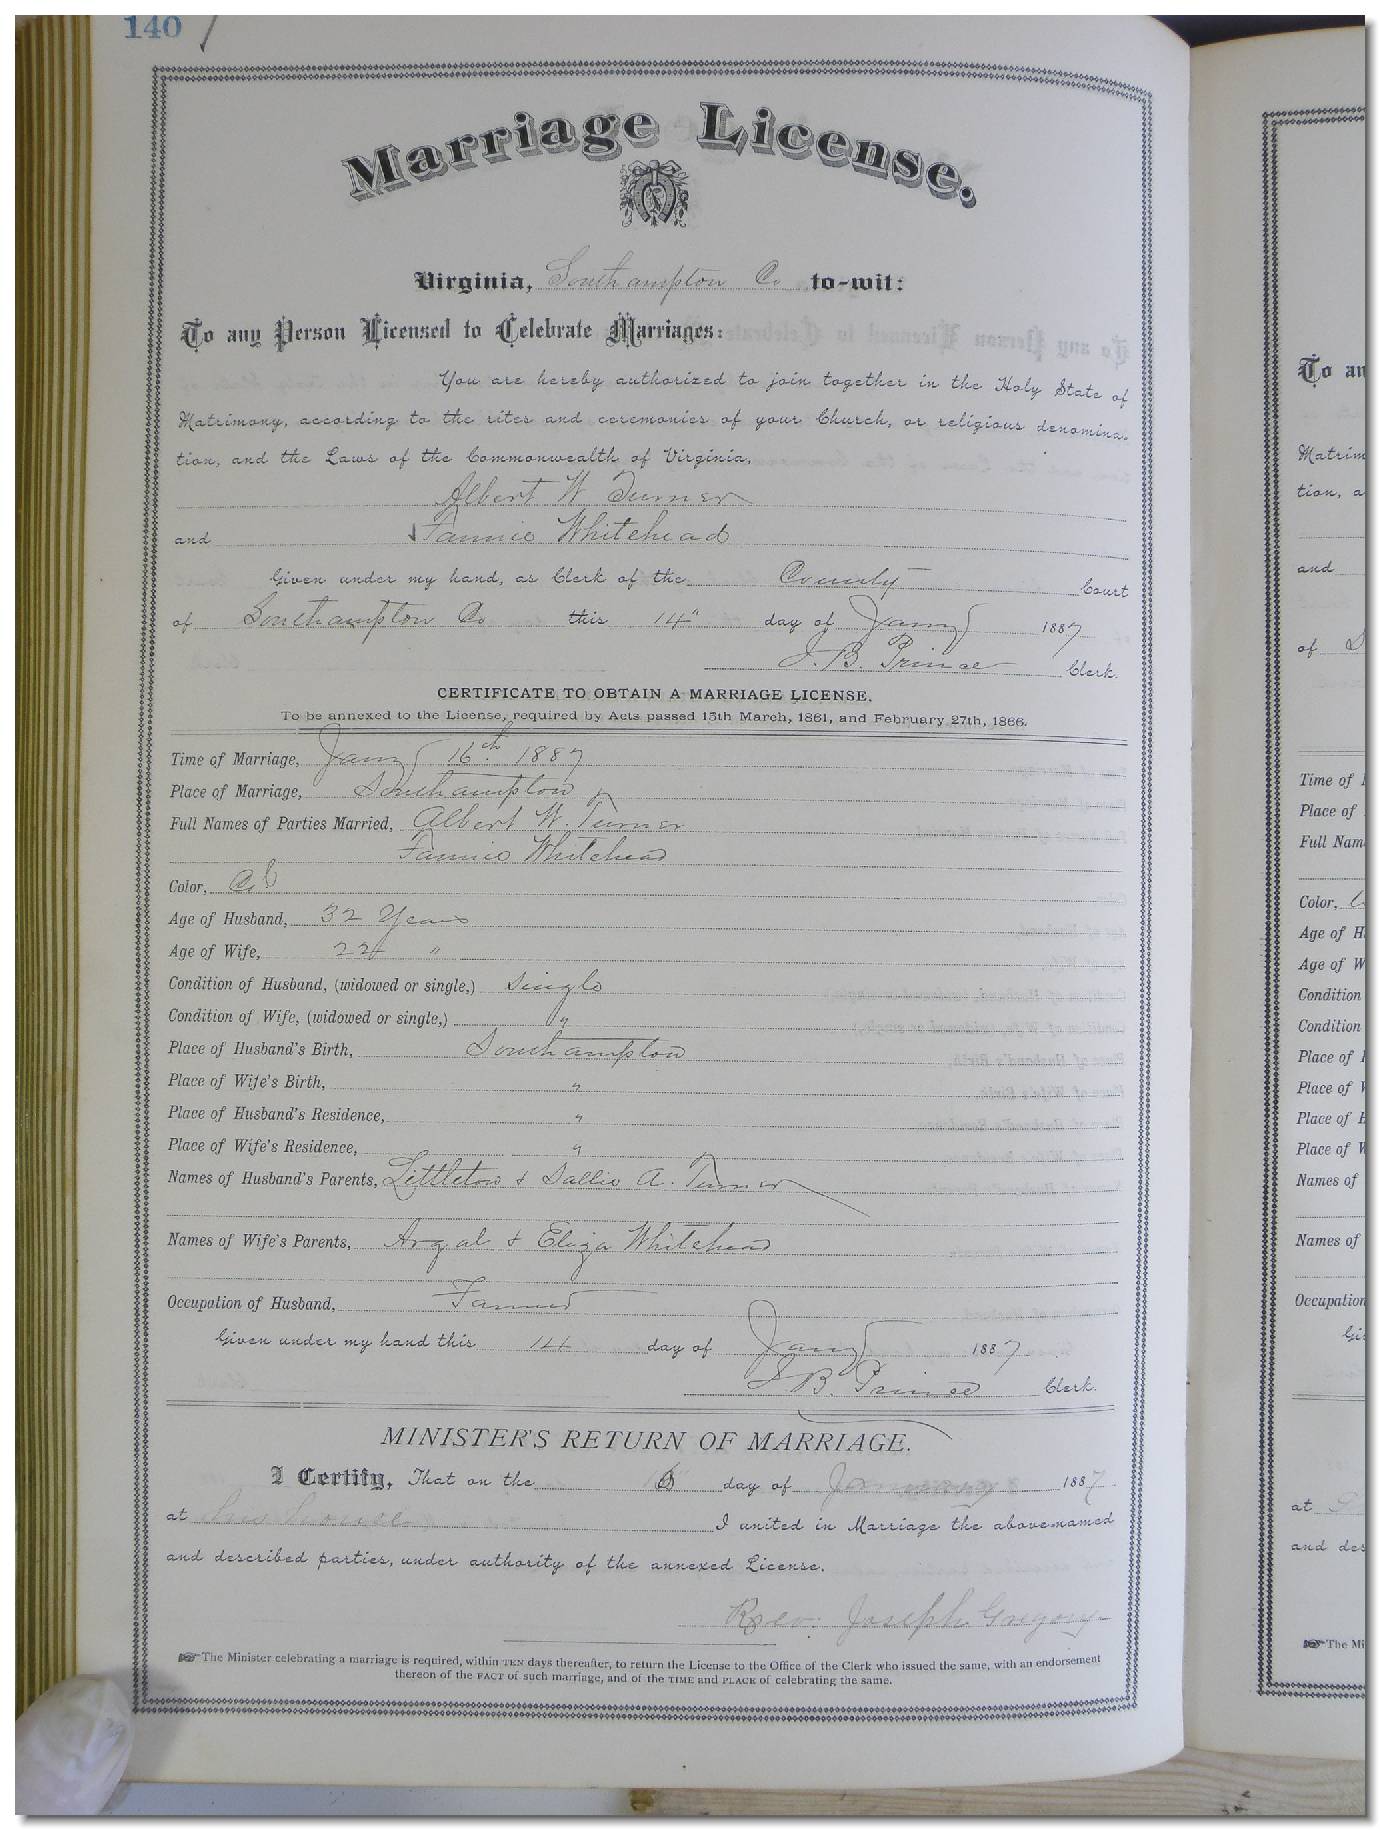 140
Marriage License.
Virginia, Southampton Co to-wit:
To any Person Licensed to Celebrate Marriages:
You are hereby authorized to join together in the Holy State of
Matrimony, according to the rites and ceremonies of your Church, or religious denomina-
tion, and the Laws of the Commonwealth of Virginia,
Albert W Turner
and Fannie Whitehead
Given under my hand, as Clerk of the County Court
of Southampton Co this 14" day of Jany 1887
J. B. Prince Clerk.
CERTIFICATE TO OBTAIN A MARRIAGE LICENSE.
To be annexed to the License, required by Acts passed 15th March, 1861, and February 27th, 1866.
Time of Marriage, Jany 16th 1887
Place of Marriage, Southampton
Full Names of Parties Married, Albert W. Turner
Fannie Whitehead
Color, Col
Age of Husband, 32 Years
Age of Wife, 22 "
Condition of Husband, (widowed or single,) Single
Condition of Wife, (widowed or single,) "
Place of Husband's Birth, Southampton
Place of Wife's Birth, "
Place of Husband's Residence, "
Place of Wife's Residence, "
Names of Husband's Parents, Littleton & Sallie A. Turner
Names of Wife's Parents, Argal & Eliza Whitehead
Occupation of Husband, Farmer
Given under my hand this 14 day of Jany 1887
J. B. Prince Clerk.
MINISTER'S RETURN OF MARRIAGE.
I Certify, That on the 16 day of January 1887
at his house I united in Marriage the abovenamed
and described parties, under authority of the annexed License.
Rev. Joseph Gregory
The Minister celebrating a marriage is required, within TEN days thereafter, to return the License to the Office of the Clerk who issued the same, with an endorsement
thereon of the FACT of such marriage, and of the TIME and PLACE of celebrating the same.
To an
Matrim
tion, a
and
of
Time of
Place of
Full Nam
Color,
Age of H
Age of W
Condition
Condition
Place of
Place of
Place of
Place of
Names of
Names of
Occupation
Gi
at
and des
The Mi